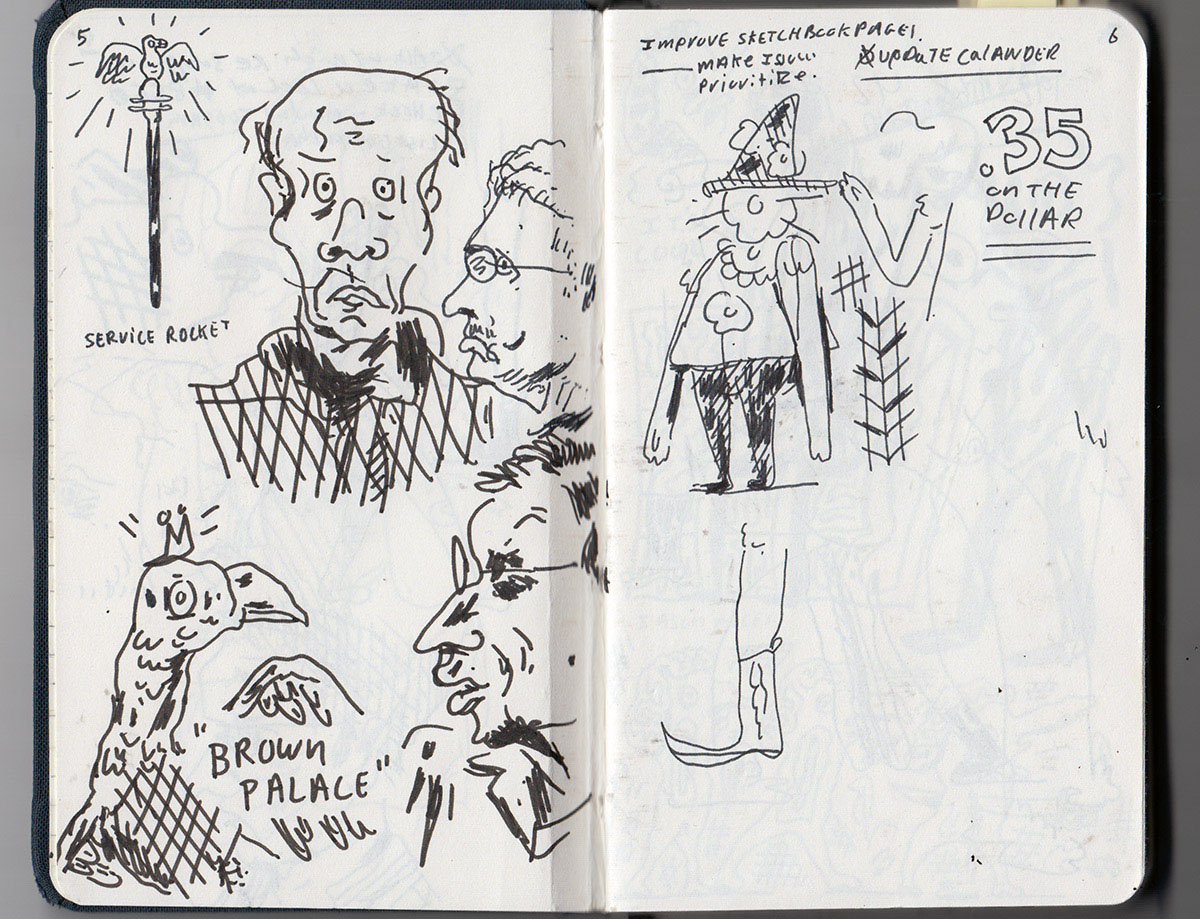 5
SERVICE ROCKET
"BROWN
PALACE"
IMPROVE SKETCHBOOK PAGES.
MAKE
Prioritize.
UPDATE CALANDER
6
.35
ON THE
DOLLAR